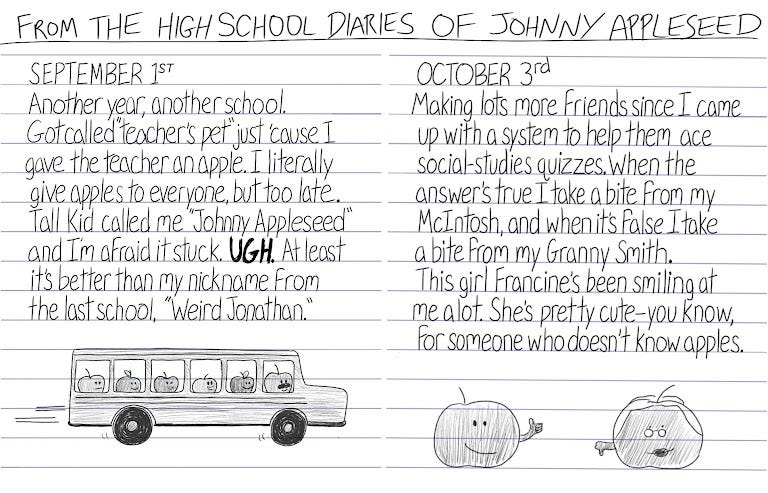 FROM THE HIGH SCHOOL DIARIES OF JOHNNY APPLESEED
SEPTEMBER 1ST
Another year, another school.
Got called "teacher's pet" just 'cause I
gave the teacher an apple. I literally
give apples to everyone, but too late.
Tall Kid called me "Johnny Appleseed"
and I'm afraid it stuck. UGH. At least
it's better than my nickname from
the last school, "Weird Jonathan."
OCTOBER 3rd
Making lots more friends since I came
up with a system to help them ace
social-studies quizzes. When the
answer's true I take a bite from my
McIntosh, and when it's false I take
a bite from my Granny Smith.
This girl Francine's been smiling at
me a lot. She's pretty cute-you know,
for someone who doesn't know apples.